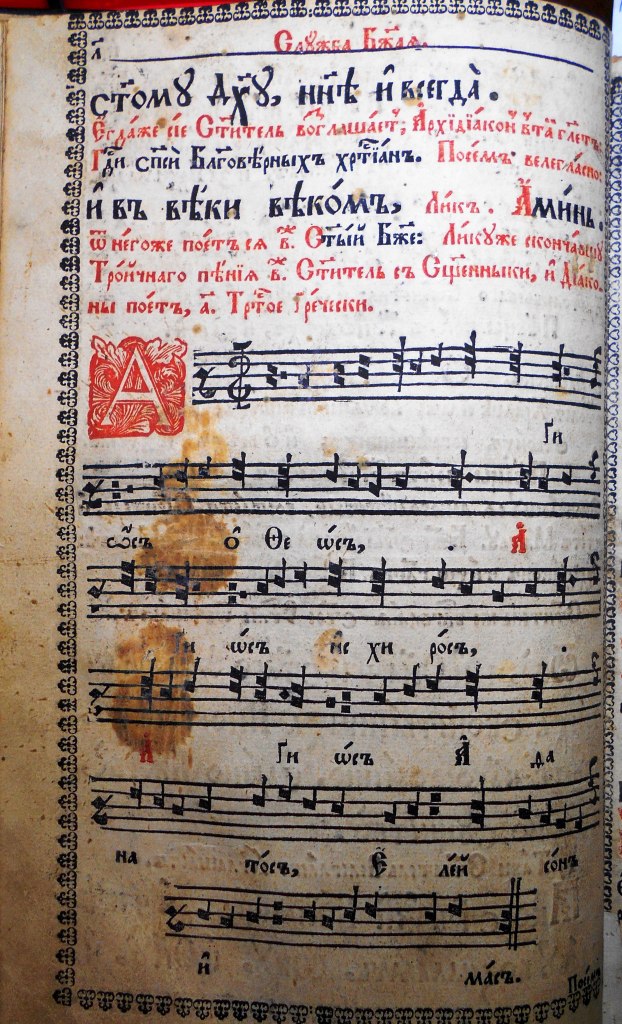 Слꙋжба Бж҃ал.
ст҃омꙋ дх҃ꙋ, ннѣ и всегда̀.
Егда́же сїе Ст҃итель возглаша́етъ; А҆рхїдїа́конъ гл҃етъ:
Гд҃и сп҃сѝ Блг҃овѣ́рныхъ хр҃тїа́нъ. Посе́мъ велегла́сно:
и҆ въ вѣ́ки вѣко́мъ, Ли́къ. А҆ми́нь.
ѿ него́же пое́тъ сѧ Ст҃ы́й Бж҃е: Ли́кꙋ же сконча́вшꙋ
Тро́йчнаго пѣ́нїѧ Ст҃итель съ Сщ҃е́нныки, и҆ Дїа́ко-
ны пое́тъ, а҃. Тр҃то́е Гре́чески.
А
ги
ѡсъ о҆ Ѳе ѡ́съ, . А҆
ги ѡсъ и҆с хи ро́съ, .
А҆ ги ѡсъ А҆ да
на тосъ, Е҆ ле́й сонъ
и҆ ма́съ.